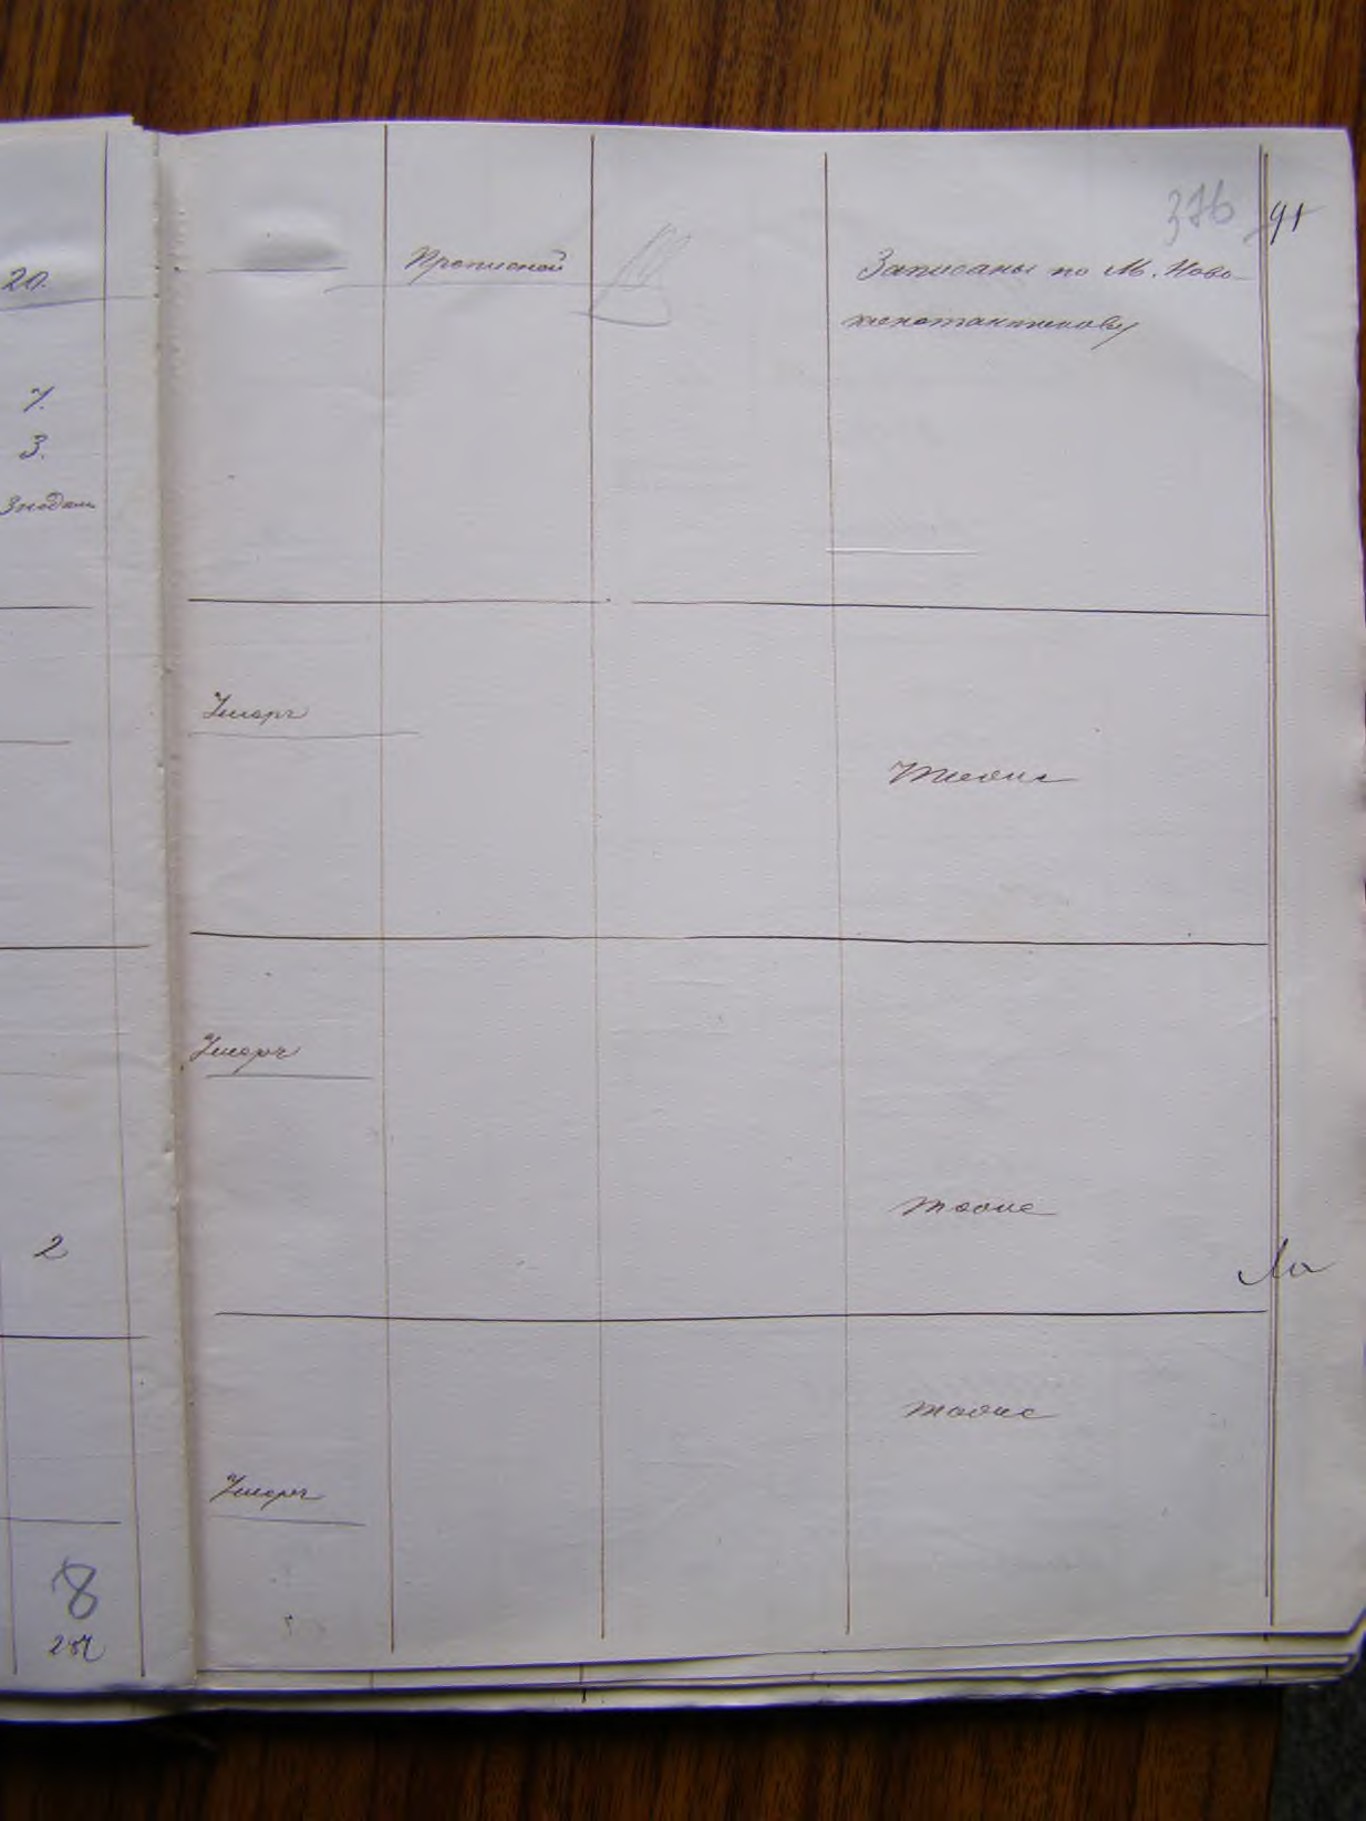 376 91
20.
Прописной
Записаны по М. Ново-
константинову
7.
3.
3 недели
Умеръ
Тоже
Умеръ
тоже
2
тоже
Умеръ
8